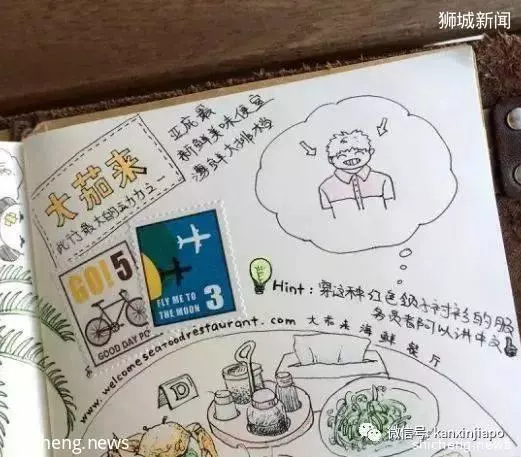 狮城新闻
亚庇最
新鲜美味便宜
海鲜大排档
大茄来
此行最大的动力之一
GO! 5
GOOD DAY PO
FLY ME TO
THE MOON 3
Hint: 穿这种红色领子衬衫的服
务员都可以讲中文
www.welcomeseafoodrestaurant.com 大茄来海鲜餐厅
D
微信号: kanxinjiapo
shicheng.news
cheng.news